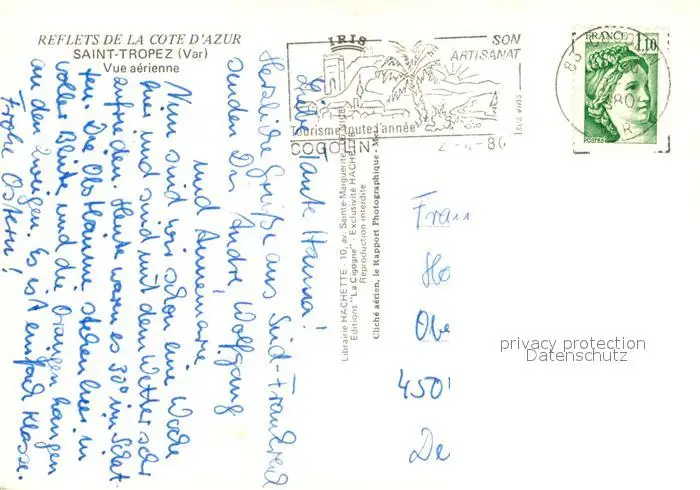 REFLETS DE LA COTE D'AZUR
SAINT-TROPEZ (Var)
Vue aérienne
IRIS
SON
ARTISANAT
Tourisme toute l'année
COGOLIN
FRANCE
1,10
POSTES
Librairie HACHETTE - 10, av. Sainte-Marguerite
Editions "La Cigogne" : Exclusivité HACHETTE
Reproduction interdite
Cliché aérien, le Rapport Photographique
Liebe Tante Hanna!
Herzliche Grüße aus Süd-Frankreich
senden Dir André Wolfgang
und Annemarie
Nun sind wir schon eine Woche
hier und sind mit dem Wetter sehr
zufrieden. Heute waren es 30° im Schat
ten. Die Obstbäume stehen hier in
voller Blüte und die Orangen hängen
an den Zweigen. Es ist einfach Klasse.
Frohe Ostern!
Frau
Ho
Obe
450
De
privacy protection
Datenschutz